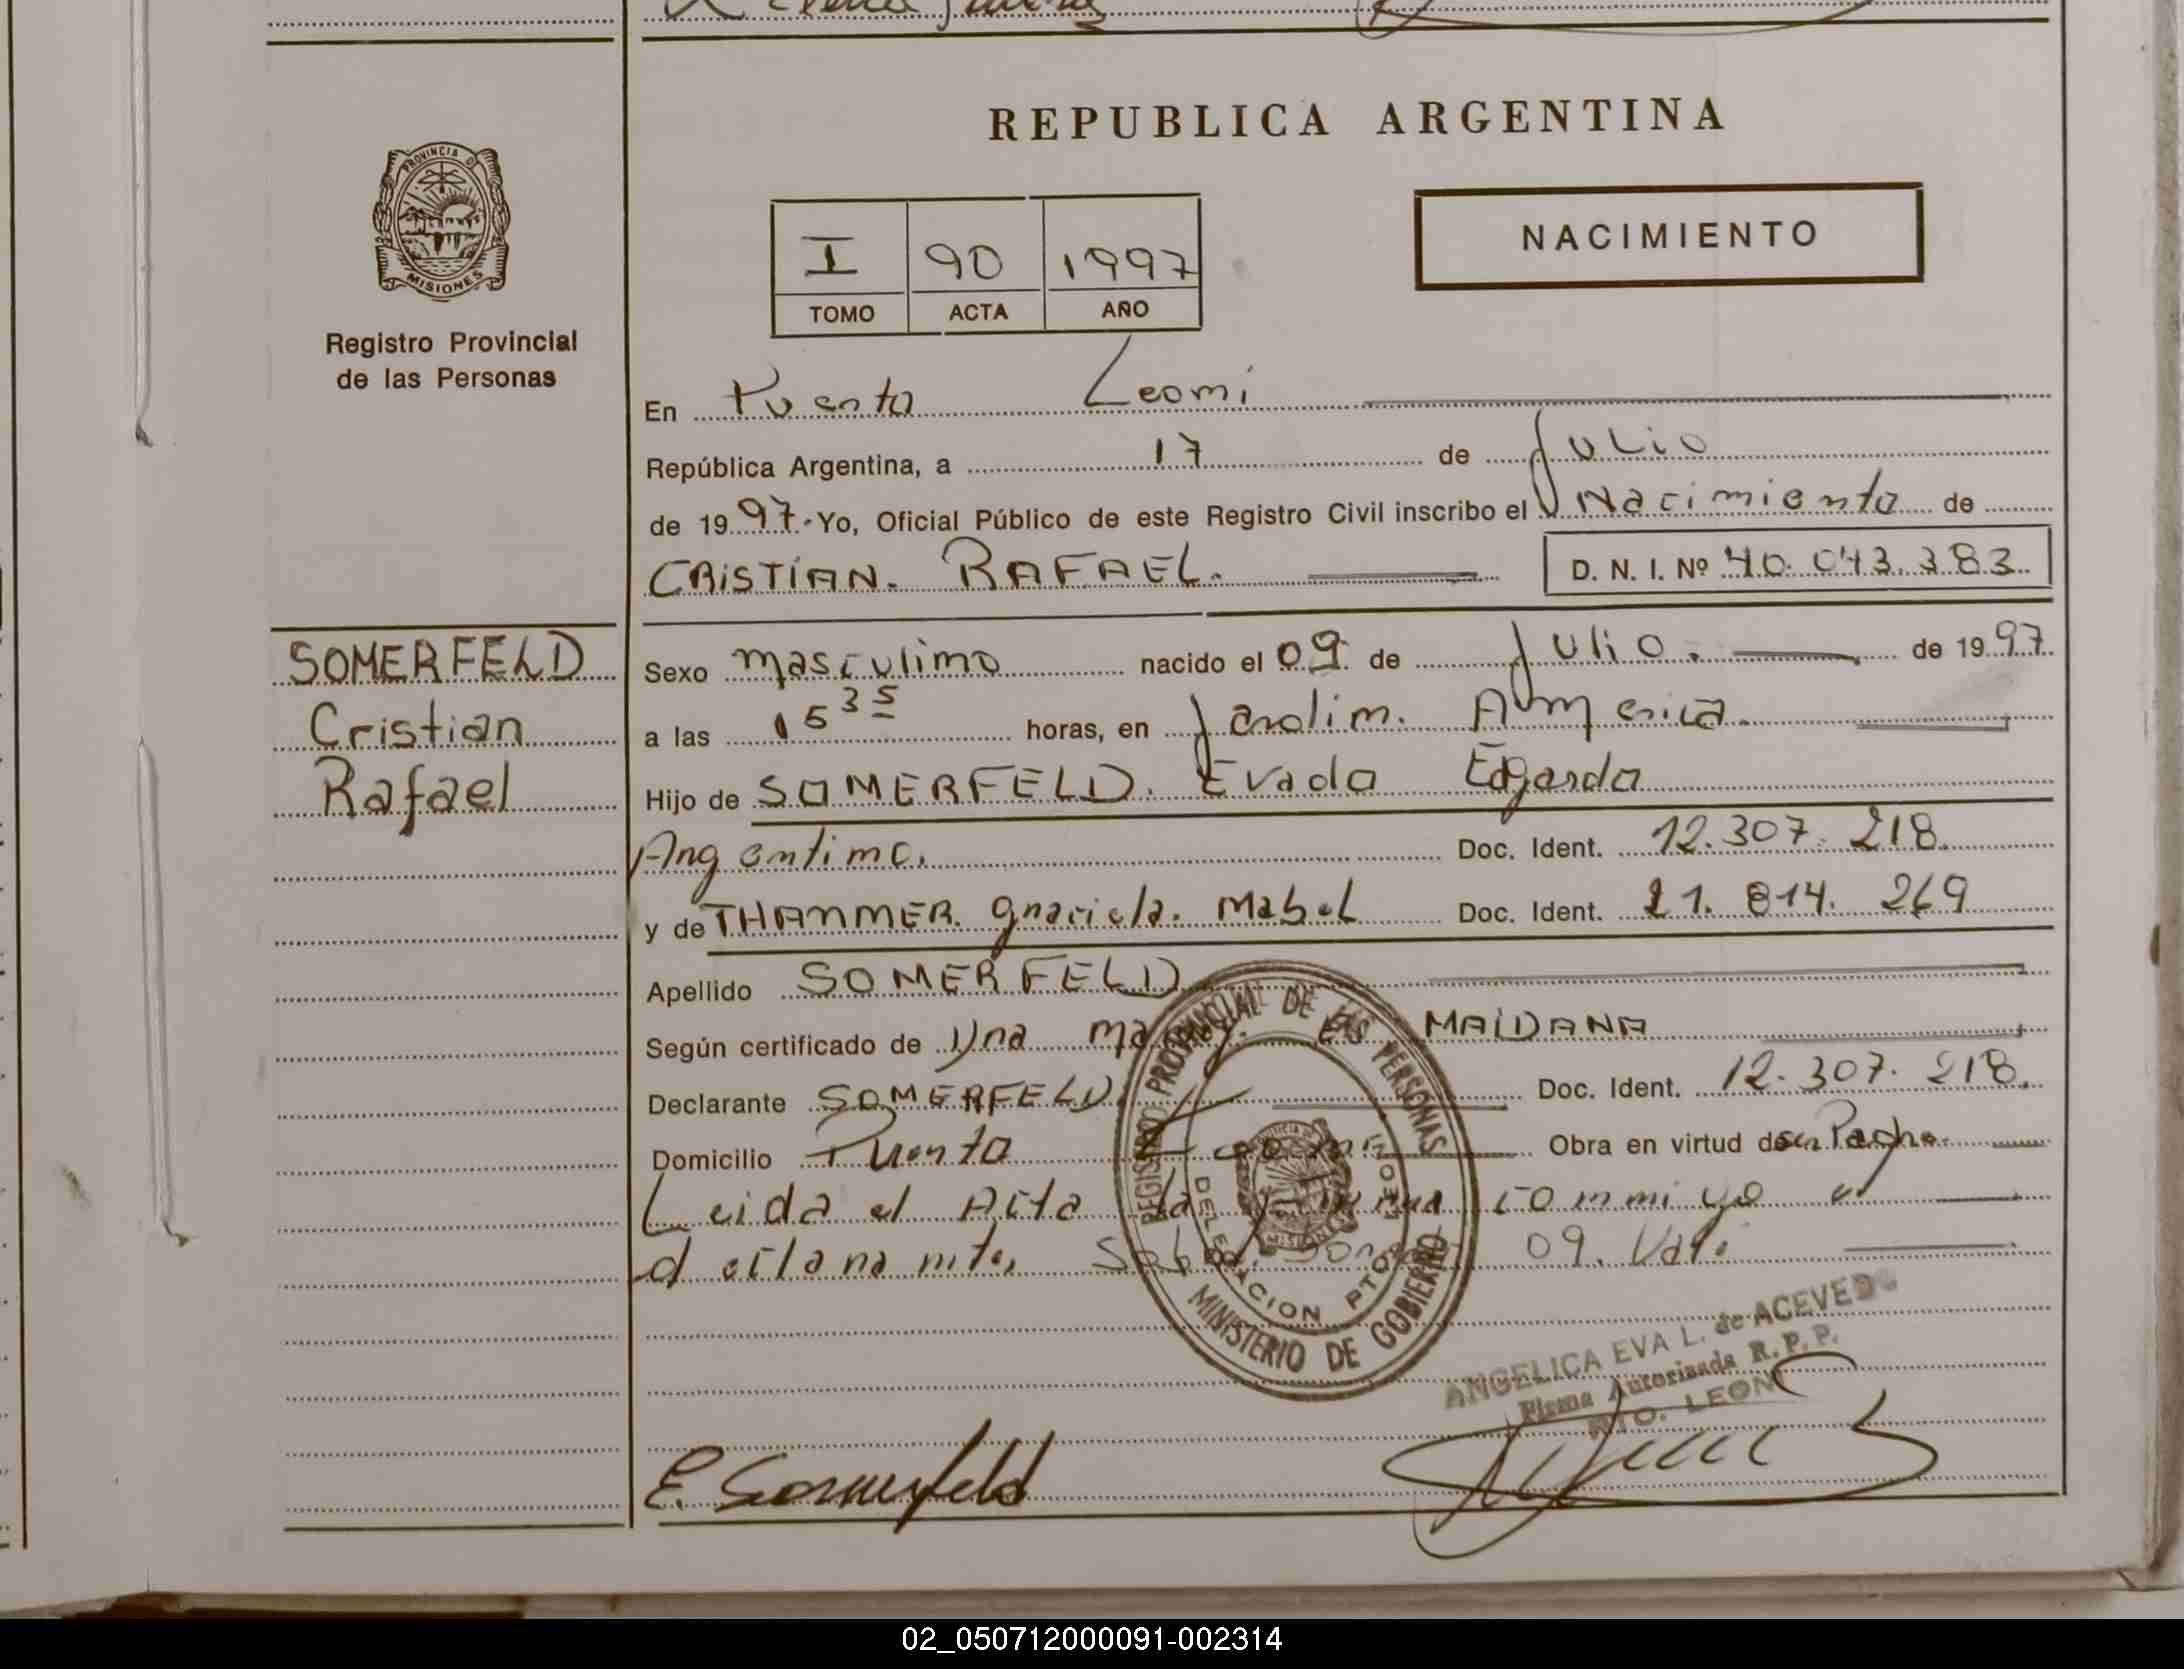 REPUBLICA ARGENTINA
PROVINCIA DE
MISIONES
Registro Provincial
de las Personas
I 90 1997
TOMO ACTA AÑO
NACIMIENTO
En Puerto Leoni
República Argentina, a 17 de Julio
de 1997. Yo, Oficial Público de este Registro Civil inscribo el Nacimiento de
CRISTIAN. RAFAEL. D. N. I. Nº 40.043.383
SOMERFELD
Cristian
Rafael
Sexo masculino nacido el 09 de Julio. de 1997
a las 15 35 horas, en Jardin. America.
Hijo de SOMERFELD. Evado Edgardo
Argentino. Doc. Ident. 12.307.218.
y de THAMMER. Graciela. Mabel Doc. Ident. 21.814.269
Apellido SOMERFELD
Según certificado de MAIDANA
Declarante SOMERFELD. Doc. Ident. 12.307.218.
Domicilio Puerto Leoni Obra en virtud de ser Padre.
Leida el Acta la firma conmigo el
declarante, 09. Vale
REGISTRO PROVINCIAL DE LAS PERSONAS
MINISTERIO DE GOBIERNO
DELEGACION PTO. LEONI
ANGELICA EVA L. de ACEVEDO
Firma Autorizada R.P.P.
PTO. LEONI
E. Somerfeld
02_050712000091-002314